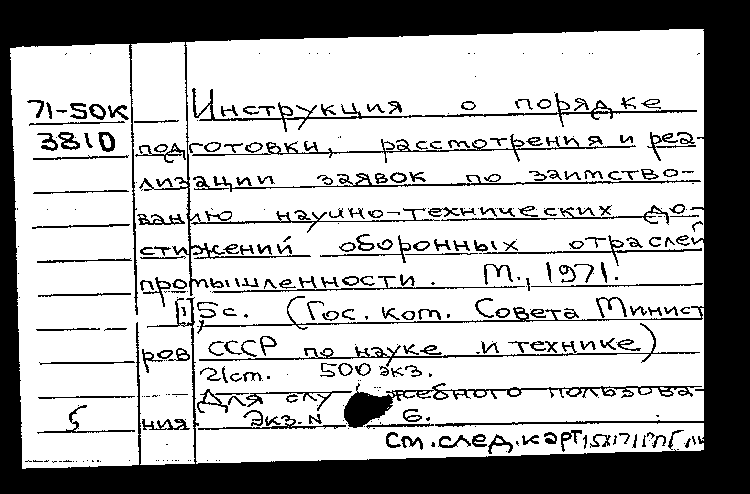 71-50К Инструкция о порядке
3810 подготовки, рассмотрения и реа-
лизации заявок по заимство-
ванию научно-технических до-
стижений оборонных отраслей
промышленности. М., 1971.
[1],5с. (Гос. ком. Совета Минист
ров СССР по науке и технике)
2/ст. 500 экз.
Для служебного пользова-
5 ния. Экз. N 6.
см. след. карт